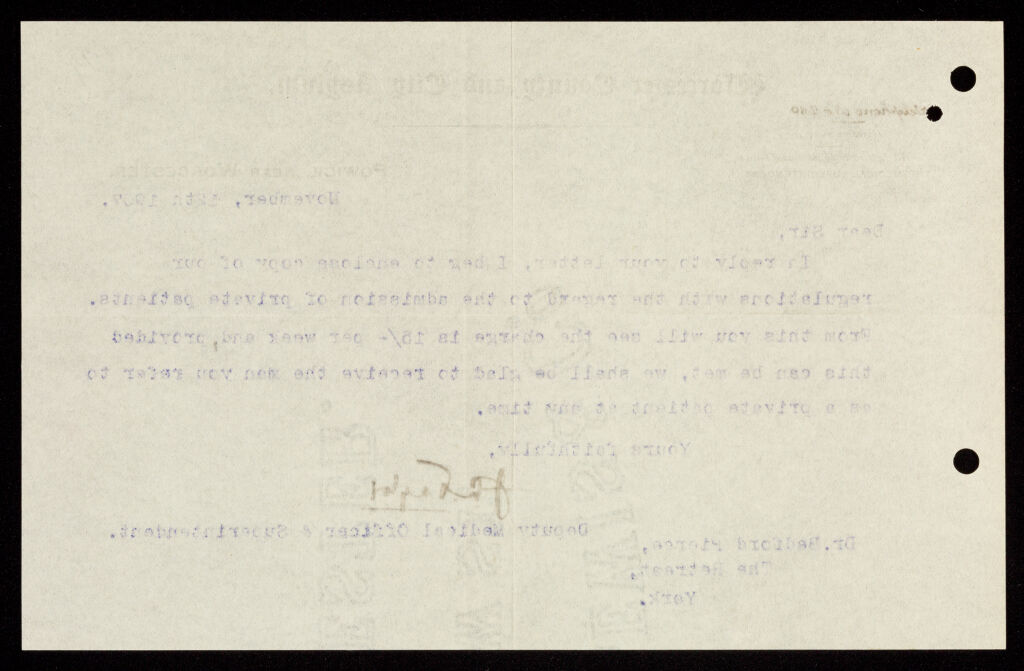 Worcester County and City Asylum.
Powick near Worcester
November, 12th 1907.
Dear Sir,
In reply to your letter, I beg to enclose copy of our
regulations with the regard to the admission of private patients.
From this you will see the charge is 15/- per week and, provided
this can be met, we shall be glad to receive the man you refer to
as a private patient at any time.
Yours faithfully,
Deputy Medical Officer & Superintendent.
Dr. Bedford Pierce,
The Retreat,
York.